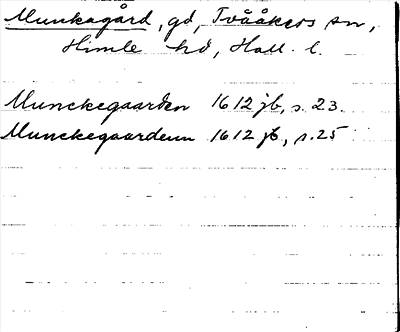 Munkagård, gd, Tvååkers sn,
Himle hd, Hall. l.
Munckegaarden 1612 jb, s. 23.
Munckegaardenn 1612 jb, s. 25